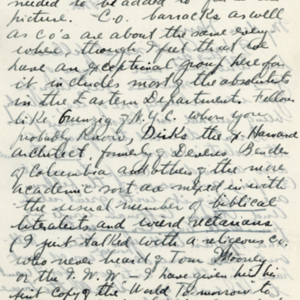 needed to be added to
picture. C.O. barracks as well
as CO's are about the same every
where, though I feel that we
have an exceptional group here for
it includes most of the absolutists
in the Eastern Department. Fellows
like Gunzig of N.Y.C. whom you
probably know, Dicks the
architect formerly of Devens
of Columbia and others of the more
academic sort are mixed in with
the usual number of biblical
literalists and weird sectarians
(I just talked with a religious co.
who never heard of Tom Mooney
or the I.W.W – I have given him his
first copy of the World Tomorrow to